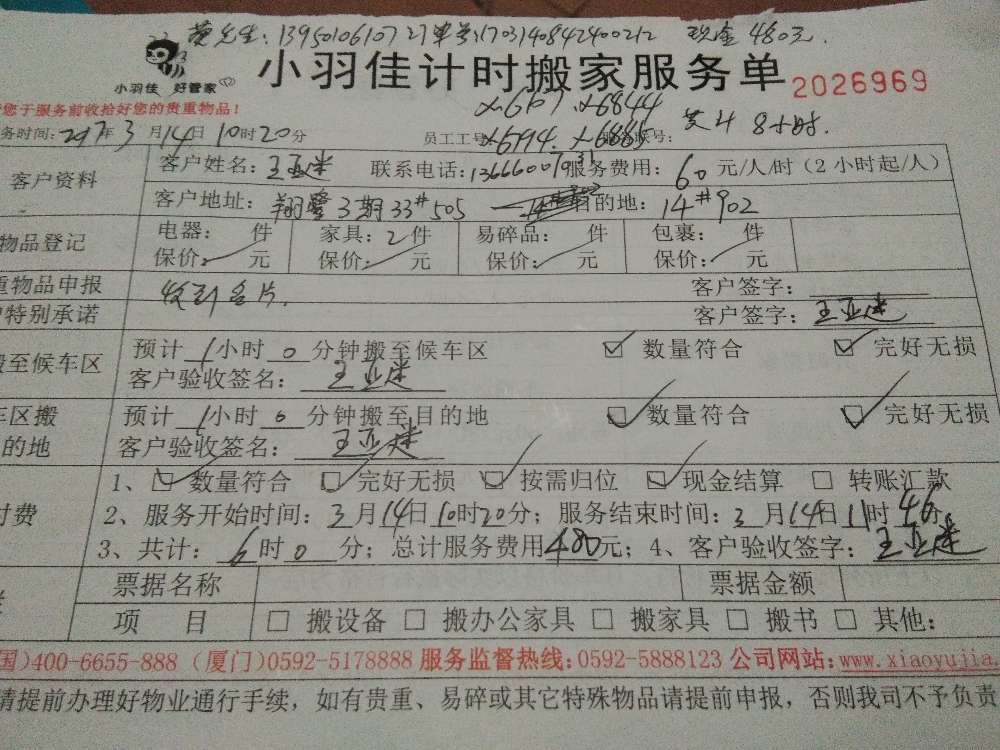 黄先生:13950106107 27单号:170314084240021 2 现金480元.
小羽佳 好管家
小羽佳计时搬家服务单 2026969
您于服务前收拾好您的贵重物品!
务时间:2017年3月14日10时20分 员工工号: 联号: 共4 8小时.
客户资料 客户姓名:王亚 联系电话: 服务费用:60元/人/时(2小时起/人)
客户地址:翔鹭3期33#505 目的地:14#902
物品登记 电器: 件 家具:2件 易碎品: 件 包裹: 件
保价: 元 保价: 元 保价: 元 保价: 元
重物品申报 收到名片. 客户签字:
特别承诺 客户签字:王亚
搬至候车区 预计1小时0分钟搬至候车区 ☑ 数量符合 ☑ 完好无损
客户验收签名:王亚
车区搬 预计1小时0分钟搬至目的地 ☑ 数量符合 ☑ 完好无损
的地 客户验收签名:王亚
1、☑ 数量符合 ☑ 完好无损 ☑ 按需归位 ☑ 现金结算 □ 转账汇款
付费 2、服务开始时间:3月14日10时20分;服务结束时间:3月14日11时46分
3、共计: 时0分;总计服务费用480元;4、客户验收签字:王亚
票据名称 票据金额
项 目 □ 搬设备 □ 搬办公家具 □ 搬家具 □ 搬书 □ 其他:
国)400-6655-888(厦门)0592-5178888 服务监督热线:0592-5888123 公司网站:www.xiaoyujia
请提前办理好物业通行手续,如有贵重、易碎或其它特殊物品请提前申报,否则我司不予负责